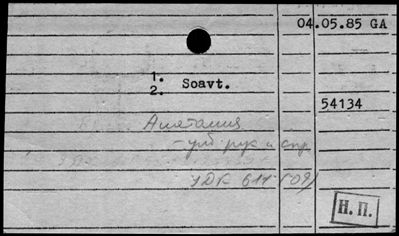 04.05.85 GA
1. Soavt.
2.
54134
Анатомия
- уч. рук и спр
УДК 611 (09)
Н. П.